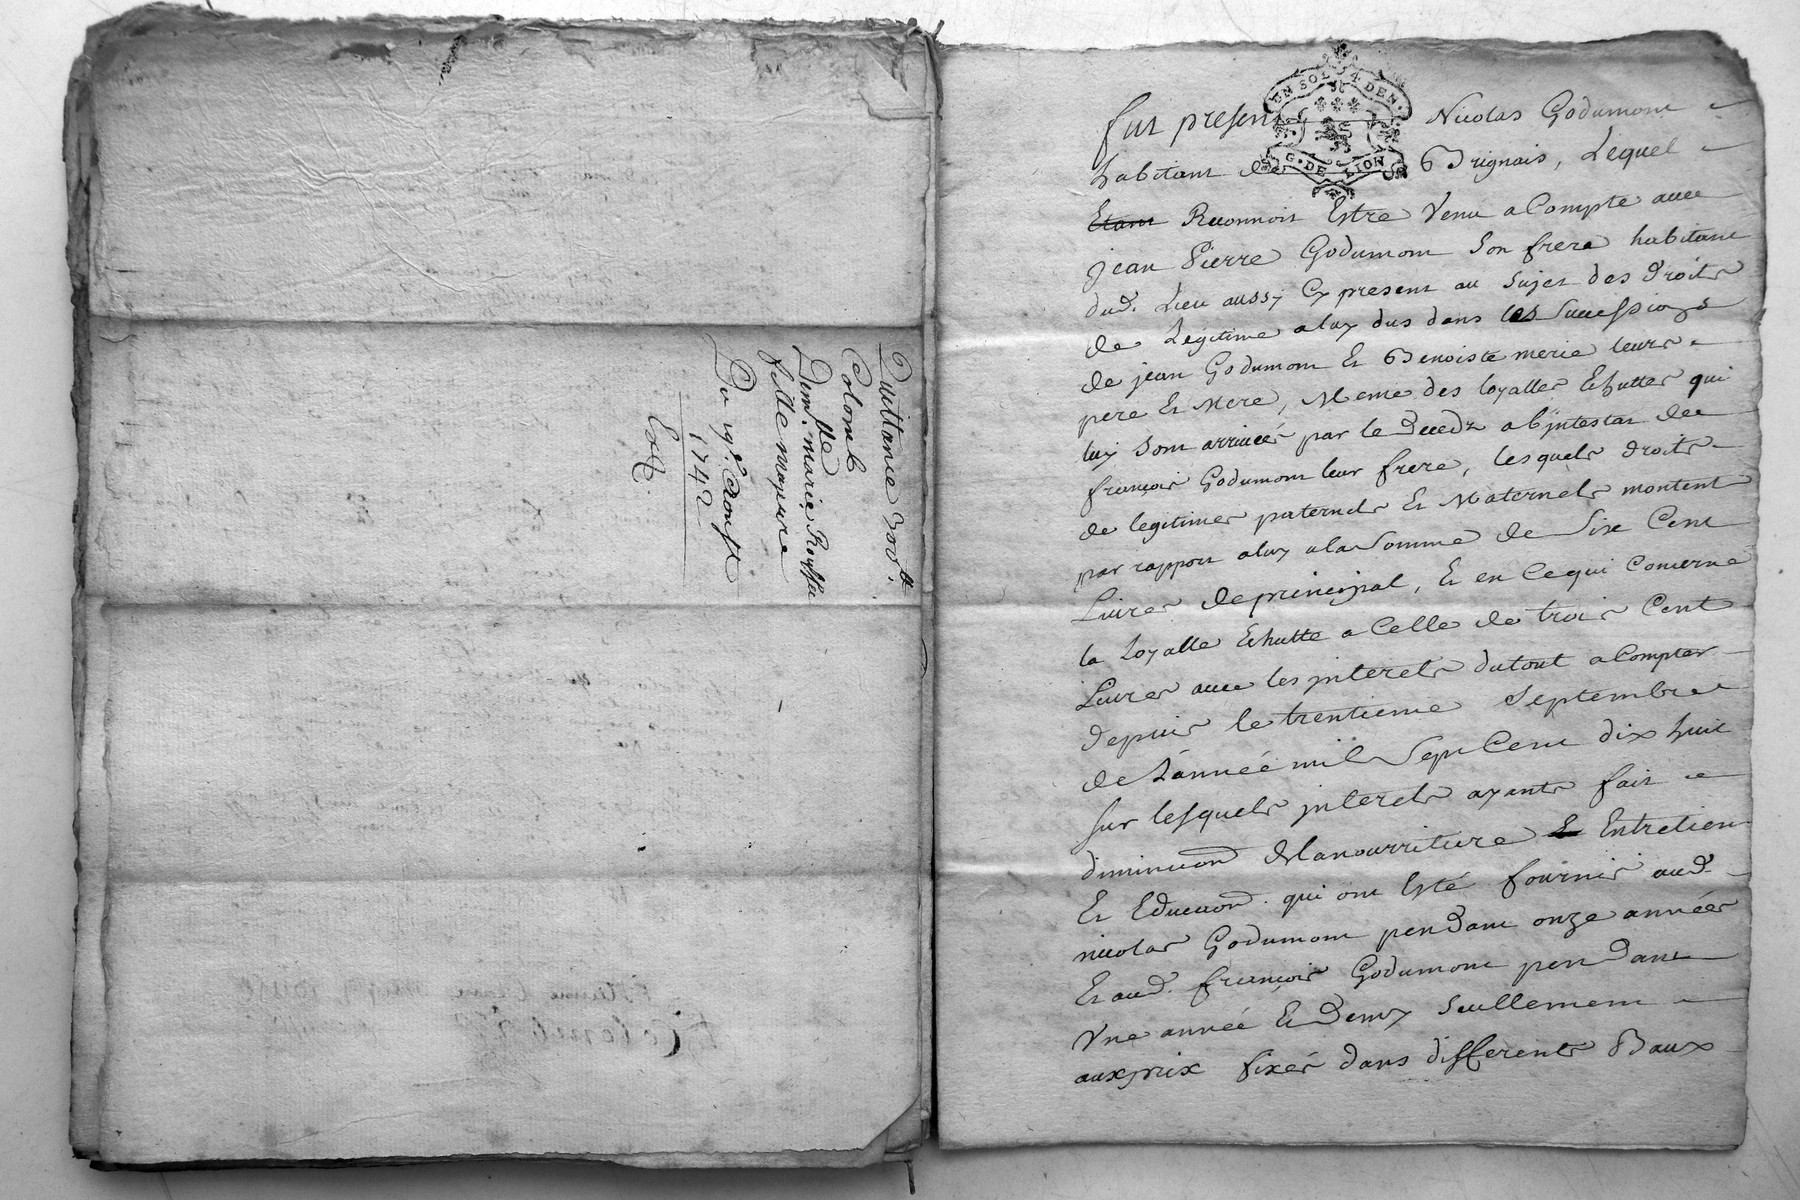 Quittance 300ᵗᵗ.
Colomb
Demˡˡᵉ. marie Rousset
fille majeure
Du 19ᵉ. Aoust
1742
UN SOL 4 DEN.
G. DE LION
fut present Nicolas Godumont
habitant de Brignais, Lequel
Etant Reconnoit Estre Venu a Compte avec
jean Pierre Godumont Son frere habitant
dud. Lieu aussy Cy present au Sujet des droits
de Legitime a luy dus dans les Successions
de jean Godumont Et Benoiste merie leurs
pere Et Mere, Meme des loyalles Echuttes qui
luy Sont arrivées par le Decedz abjntestat de
françois Godumont leur frere, lesquels droits
de legitimes paternels Et Maternels montent
par rapport a luy a la Somme de Six Cent
Livres de principal, Et en Ce qui Concerne
la Loyalle Echutte a Celle de trois Cent
Livres avec les jnterets du tout a Compter
depuis le trentieme Septembre
de L'année mil Sept Cent dix huit
sur lesquels jnterets ayants fait
diminuon de la nourriture Et Entretien
Et Educaon. qui ont Esté fournis aud.
nicolas Godumont pendant onze années
Et aud. françois Godumont pendant
Vne année Et Demy Seullement
aux prix fixés dans differents Baux